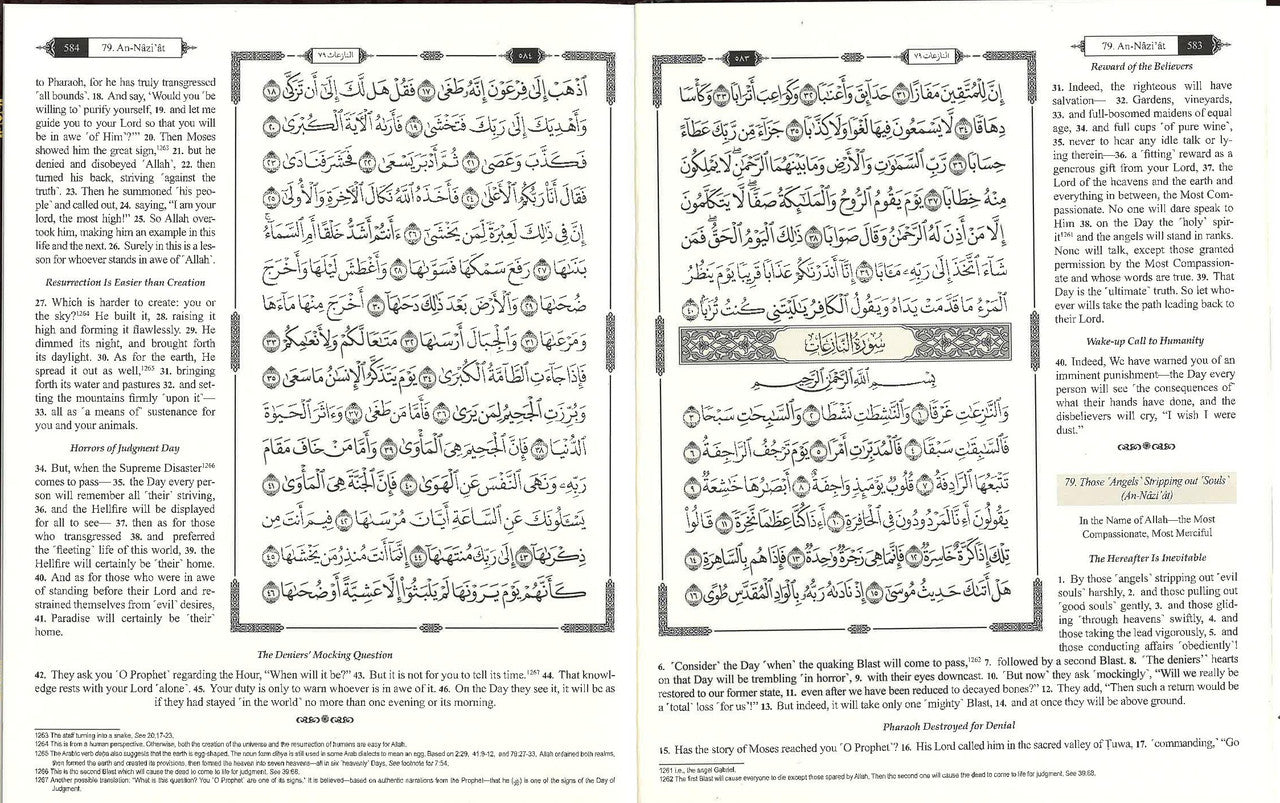 79. An-Nâzi'ât 583
٥٨٣ النازعات ٧٩
إِنَّ لِلْمُتَّقِينَ مَفَازًا ٣١ حَدَآئِقَ وَأَعْنَٰبًا ٣٢ وَكَوَاعِبَ أَتْرَابًا ٣٣ وَكَأْسًا
دِهَاقًا ٣٤ لَّا يَسْمَعُونَ فِيهَا لَغْوًا وَلَا كِذَّٰبًا ٣٥ جَزَآءً مِّن رَّبِّكَ عَطَآءً
حِسَابًا ٣٦ رَّبِّ ٱلسَّمَٰوَٰتِ وَٱلْأَرْضِ وَمَا بَيْنَهُمَا ٱلرَّحْمَٰنِۖ لَا يَمْلِكُونَ
مِنْهُ خِطَابًا ٣٧ يَوْمَ يَقُومُ ٱلرُّوحُ وَٱلْمَلَٰٓئِكَةُ صَفًّاۖ لَّا يَتَكَلَّمُونَ
إِلَّا مَنْ أَذِنَ لَهُ ٱلرَّحْمَٰنُ وَقَالَ صَوَابًا ٣٨ ذَٰلِكَ ٱلْيَوْمُ ٱلْحَقُّۖ فَمَن
شَآءَ ٱتَّخَذَ إِلَىٰ رَبِّهِۦ مَـَٔابًا ٣٩ إِنَّآ أَنذَرْنَٰكُمْ عَذَابًا قَرِيبًا يَوْمَ يَنظُرُ
ٱلْمَرْءُ مَا قَدَّمَتْ يَدَاهُ وَيَقُولُ ٱلْكَافِرُ يَٰلَيْتَنِى كُنتُ تُرَٰبًا ٤٠
سُورَةُ النَّازِعَاتِ
بِسْمِ ٱللَّهِ ٱلرَّحْمَٰنِ ٱلرَّحِيمِ
وَٱلنَّٰزِعَٰتِ غَرْقًا ١ وَٱلنَّٰشِطَٰتِ نَشْطًا ٢ وَٱلسَّٰبِحَٰتِ سَبْحًا ٣
فَٱلسَّٰبِقَٰتِ سَبْقًا ٤ فَٱلْمُدَبِّرَٰتِ أَمْرًا ٥ يَوْمَ تَرْجُفُ ٱلرَّاجِفَةُ ٦
تَتْبَعُهَا ٱلرَّادِفَةُ ٧ قُلُوبٌ يَوْمَئِذٍ وَاجِفَةٌ ٨ أَبْصَٰرُهَا خَٰشِعَةٌ ٩
يَقُولُونَ أَءِنَّا لَمَرْدُودُونَ فِى ٱلْحَافِرَةِ ١٠ أَءِذَا كُنَّا عِظَٰمًا نَّخِرَةً ١١ قَالُوا۟
تِلْكَ إِذًا كَرَّةٌ خَاسِرَةٌ ١٢ فَإِنَّمَا هِىَ زَجْرَةٌ وَٰحِدَةٌ ١٣ فَإِذَا هُم بِٱلسَّاهِرَةِ ١٤
هَلْ أَتَىٰكَ حَدِيثُ مُوسَىٰٓ ١٥ إِذْ نَادَىٰهُ رَبُّهُۥ بِٱلْوَادِ ٱلْمُقَدَّسِ طُوًى ١٦
Reward of the Believers
31. Indeed, the righteous will have
salvation— 32. Gardens, vineyards,
33. and full-bosomed maidens of equal
age, 34. and full cups ˹of pure wine˺,
35. never to hear any idle talk or ly-
ing therein—36. a ˹fitting˺ reward as a
generous gift from your Lord, 37. the
Lord of the heavens and the earth and
everything in between, the Most Com-
passionate. No one will dare speak to
Him 38. on the Day the ˹holy˺ spir-
it1261 and the angels will stand in ranks.
None will talk, except those granted
permission by the Most Compassion-
ate and whose words are true. 39. That
Day is the ˹ultimate˺ truth. So let who-
ever wills take the path leading back to
their Lord.
Wake-up Call to Humanity
40. Indeed, We have warned you of an
imminent punishment—the Day every
person will see ˹the consequences of˺
what their hands have done, and the
disbelievers will cry, “I wish I were
dust.”
79. Those ˹Angels˺ Stripping out ˹Souls˺
(An-Nâzi'ât)
In the Name of Allah—the Most
Compassionate, Most Merciful
The Hereafter Is Inevitable
1. By those ˹angels˺ stripping out ˹evil
souls˺ harshly, 2. and those pulling out
˹good souls˺ gently, 3. and those glid-
ing ˹through heavens˺ swiftly, 4. and
those taking the lead vigorously, 5. and
those conducting affairs ˹obediently˺!
6. ˹Consider˺ the Day ˹when˺ the quaking Blast will come to pass,1262 7. followed by a second Blast. 8. ˹The deniers'˺ hearts
on that Day will be trembling ˹in horror˺, 9. with their eyes downcast. 10. ˹But now˺ they ask ˹mockingly˺, “Will we really be
restored to our former state, 11. even after we have been reduced to decayed bones?” 12. They add, “Then such a return would be
a ˹total˺ loss ˹for us˺!” 13. But indeed, it will take only one ˹mighty˺ Blast, 14. and at once they will be above ground.
Pharaoh Destroyed for Denial
15. Has the story of Moses reached you ˹O Prophet˺? 16. His Lord called him in the sacred valley of Ṭuwa, 17. ˹commanding,˺ “Go
1261 i.e., the angel Gabriel.
1262 The first Blast will cause everyone to die except those spared by Allah. Then the second one will cause the dead to come to life for judgment. See 39:68.
584 79. An-Nâzi'ât
النازعات ٧٩ ٥٨٤
ٱذْهَبْ إِلَىٰ فِرْعَوْنَ إِنَّهُۥ طَغَىٰ ١٧ فَقُلْ هَل لَّكَ إِلَىٰٓ أَن تَزَكَّىٰ ١٨
وَأَهْدِيَكَ إِلَىٰ رَبِّكَ فَتَخْشَىٰ ١٩ فَأَرَىٰهُ ٱلْـَٔايَةَ ٱلْكُبْرَىٰ ٢٠
فَكَذَّبَ وَعَصَىٰ ٢١ ثُمَّ أَدْبَرَ يَسْعَىٰ ٢٢ فَحَشَرَ فَنَادَىٰ ٢٣
فَقَالَ أَنَا۠ رَبُّكُمُ ٱلْأَعْلَىٰ ٢٤ فَأَخَذَهُ ٱللَّهُ نَكَالَ ٱلْـَٔاخِرَةِ وَٱلْأُولَىٰٓ ٢٥
إِنَّ فِى ذَٰلِكَ لَعِبْرَةً لِّمَن يَخْشَىٰٓ ٢٦ ءَأَنتُمْ أَشَدُّ خَلْقًا أَمِ ٱلسَّمَآءُۚ
بَنَىٰهَا ٢٧ رَفَعَ سَمْكَهَا فَسَوَّىٰهَا ٢٨ وَأَغْطَشَ لَيْلَهَا وَأَخْرَجَ
ضُحَىٰهَا ٢٩ وَٱلْأَرْضَ بَعْدَ ذَٰلِكَ دَحَىٰهَآ ٣٠ أَخْرَجَ مِنْهَا مَآءَهَا
وَمَرْعَىٰهَا ٣١ وَٱلْجِبَالَ أَرْسَىٰهَا ٣٢ مَتَٰعًا لَّكُمْ وَلِأَنْعَٰمِكُمْ ٣٣
فَإِذَا جَآءَتِ ٱلطَّآمَّةُ ٱلْكُبْرَىٰ ٣٤ يَوْمَ يَتَذَكَّرُ ٱلْإِنسَٰنُ مَا سَعَىٰ ٣٥
وَبُرِّزَتِ ٱلْجَحِيمُ لِمَن يَرَىٰ ٣٦ فَأَمَّا مَن طَغَىٰ ٣٧ وَءَاثَرَ ٱلْحَيَوٰةَ
ٱلدُّنْيَا ٣٨ فَإِنَّ ٱلْجَحِيمَ هِىَ ٱلْمَأْوَىٰ ٣٩ وَأَمَّا مَنْ خَافَ مَقَامَ
رَبِّهِۦ وَنَهَى ٱلنَّفْسَ عَنِ ٱلْهَوَىٰ ٤٠ فَإِنَّ ٱلْجَنَّةَ هِىَ ٱلْمَأْوَىٰ ٤١
يَسْـَٔلُونَكَ عَنِ ٱلسَّاعَةِ أَيَّانَ مُرْسَىٰهَا ٤٢ فِيمَ أَنتَ مِن
ذِكْرَىٰهَآ ٤٣ إِلَىٰ رَبِّكَ مُنتَهَىٰهَآ ٤٤ إِنَّمَآ أَنتَ مُنذِرُ مَن يَخْشَىٰهَا ٤٥
كَأَنَّهُمْ يَوْمَ يَرَوْنَهَا لَمْ يَلْبَثُوٓا۟ إِلَّا عَشِيَّةً أَوْ ضُحَىٰهَا ٤٦
to Pharaoh, for he has truly transgressed
˹all bounds˺. 18. And say, ‘Would you ˹be
willing to˺ purify yourself, 19. and let me
guide you to your Lord so that you will
be in awe ˹of Him˺?’” 20. Then Moses
showed him the great sign,1263 21. but he
denied and disobeyed ˹Allah˺, 22. then
turned his back, striving ˹against the
truth˺. 23. Then he summoned ˹his peo-
ple˺ and called out, 24. saying, “I am your
lord, the most high!” 25. So Allah over-
took him, making him an example in this
life and the next. 26. Surely in this is a les-
son for whoever stands in awe of ˹Allah˺.
Resurrection Is Easier than Creation
27. Which is harder to create: you or
the sky?1264 He built it, 28. raising it
high and forming it flawlessly. 29. He
dimmed its night, and brought forth
its daylight. 30. As for the earth, He
spread it out as well,1265 31. bringing
forth its water and pastures 32. and set-
ting the mountains firmly ˹upon it˺—
33. all as ˹a means of˺ sustenance for
you and your animals.
Horrors of Judgment Day
34. But, when the Supreme Disaster1266
comes to pass— 35. the Day every per-
son will remember all ˹their˺ striving,
36. and the Hellfire will be displayed
for all to see— 37. then as for those
who transgressed 38. and preferred
the ˹fleeting˺ life of this world, 39. the
Hellfire will certainly be ˹their˺ home.
40. And as for those who were in awe
of standing before their Lord and re-
strained themselves from ˹evil˺ desires,
41. Paradise will certainly be ˹their˺
home.
The Deniers' Mocking Question
42. They ask you ˹O Prophet˺ regarding the Hour, “When will it be?” 43. But it is not for you to tell its time.1267 44. That knowl-
edge rests with your Lord ˹alone˺. 45. Your duty is only to warn whoever is in awe of it. 46. On the Day they see it, it will be as
if they had stayed ˹in the world˺ no more than one evening or its morning.
1263 The staff turning into a snake. See 20:17-23.
1264 This is from a human perspective. Otherwise, both the creation of the universe and the resurrection of humans are easy for Allah.
1265 The Arabic verb daḥa also suggests that the earth is egg-shaped. The noun form diḥya is still used in some Arab dialects to mean an egg. Based on 2:29, 41:9-12, and 79:27-33, Allah ordained both realms,
then formed the earth and created its provisions, then formed the heaven into seven heavens—all in six ˹heavenly˺ Days. See footnote for 7:54.
1266 This is the second Blast which will cause the dead to come to life for judgment. See 39:68.
1267 Another possible translation: “What is this question? You ˹O Prophet˺ are one of its signs.” It is believed—based on authentic narrations from the Prophet—that he (ﷺ) is one of the signs of the Day of
Judgment.